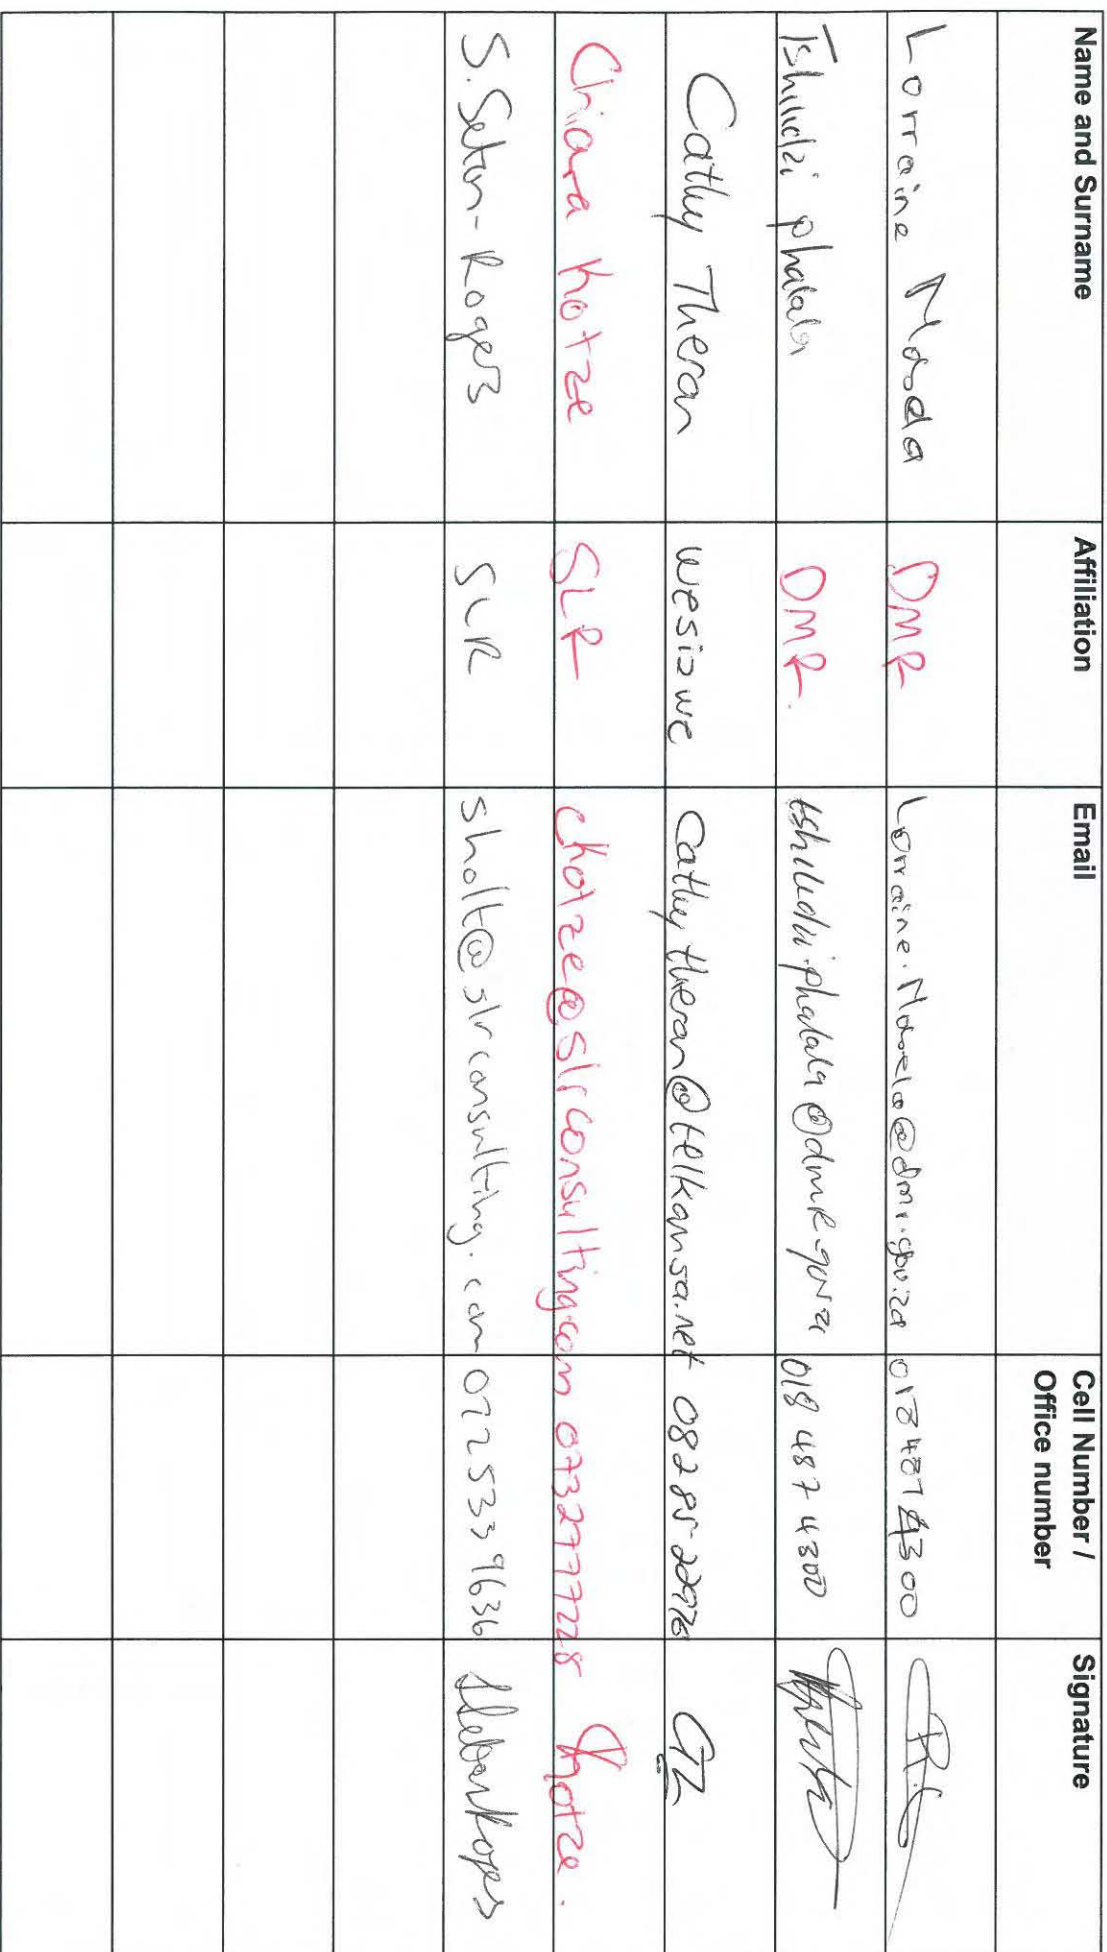 Name and Surname Affiliation Email Cell Number / Office number Signature
Lorraine DMR 018 487 4300
Tshilidzi phalala DMR. 018 487 4300
Cathy Theron wesizwe cathytheron@telkomsa.net 082 85 22976
Chiara Kotze SLR ckotze@slrconsulting.com 0732777728 Ckotze.
S. Seton-Rogers SLR sholt@slrconsulting.com 0725339636